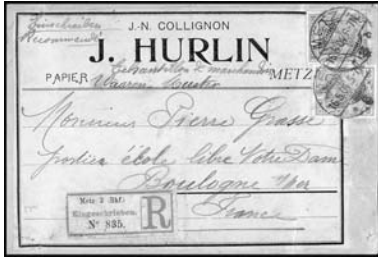 Einschreiben
Recommandé
J.-N. COLLIGNON
J. HURLIN
PAPIER
METZ
Echantillon de marchandise
Waaren Muster
Monsieur Pierre Grasse
école libre Notre Dame
Boulogne s/mer
France
Metz 2 (Bhf)
Eingeschrieben.
Nº 835.
R